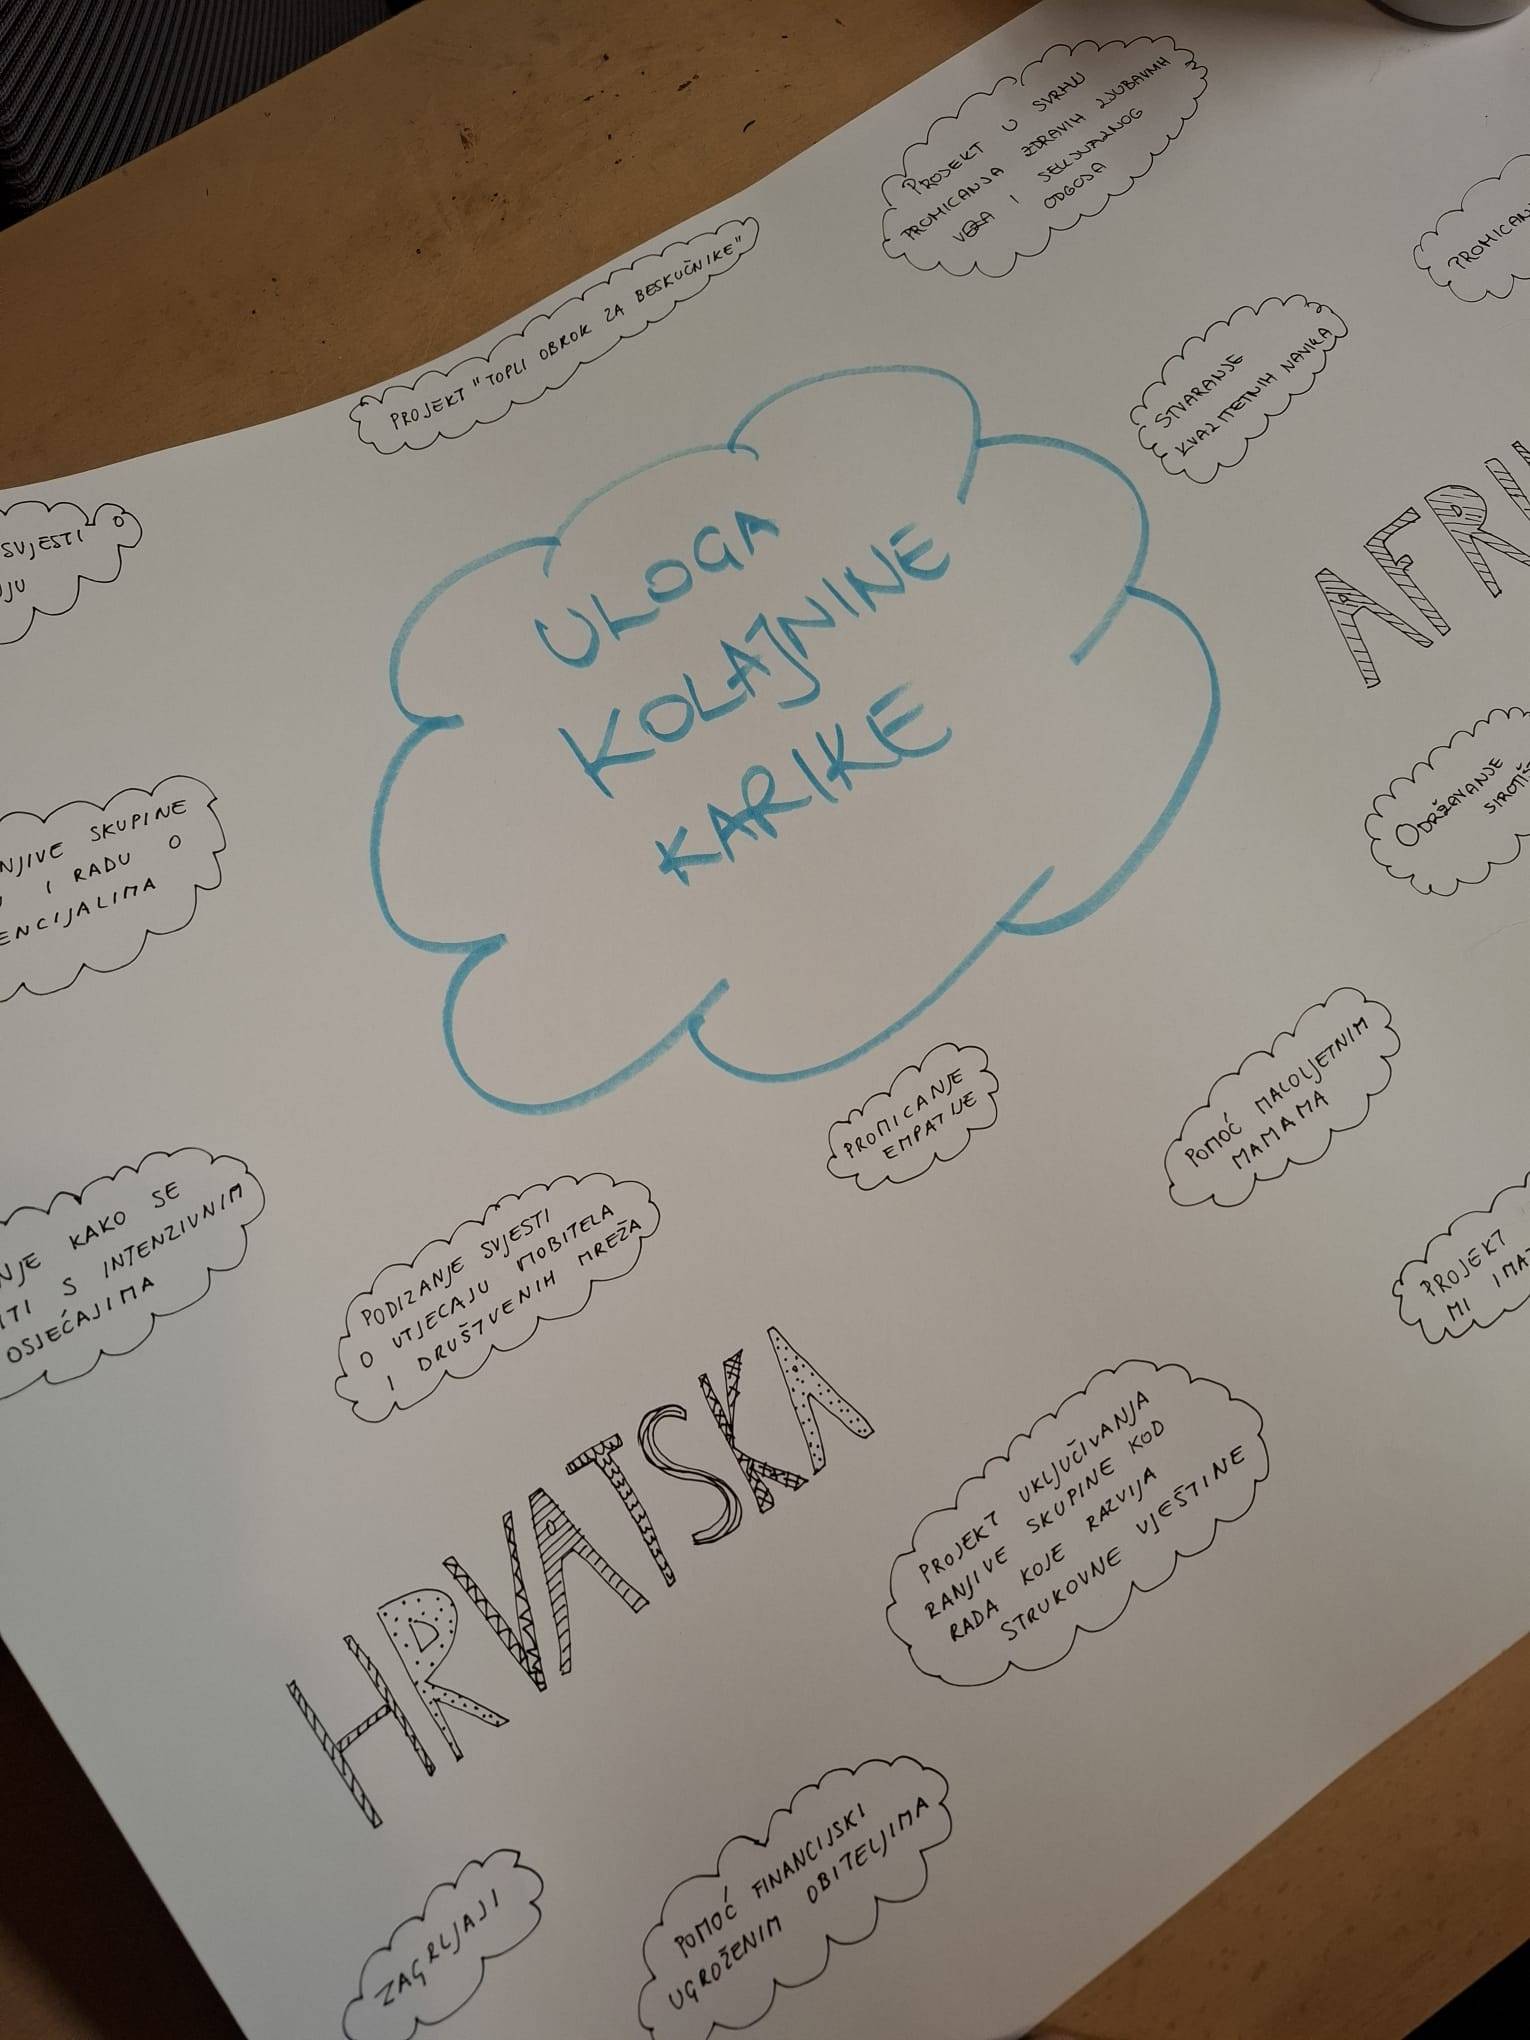 PROJEKT U SVRHU
PROMICANJA ZDRAVIH LJUBAVNIH
VEZA I SEKSUALNOG
ODGOJA
PROJEKT "TOPLI OBROK ZA BESKUČNIKE"
STVARANJE
KVALITETNIH NAVIKA
SVJESTI O
ULOGA
KOLAJNINE
KARIKE
ODRŽAVANJE
SKUPINE
I RADU O
PROMICANJE
EMPATIJE
POMOĆ MALOLJETNIM
MAMAMA
KAKO SE
S INTENZIVNIM
OSJEĆAJIMA
PODIZANJE SVJESTI
O UTJECAJU MOBITELA
I DRUŠTVENIH MREŽA
PROJEKT
MI
HRVATSKA
PROJEKT UKLJUČIVANJA
RANJIVE SKUPINE KOD
RADA KOJE RAZVIJA
STRUKOVNE VJEŠTINE
ZAGRLJAJI
POMOĆ FINANCIJSKI
UGROŽENIM OBITELJIMA